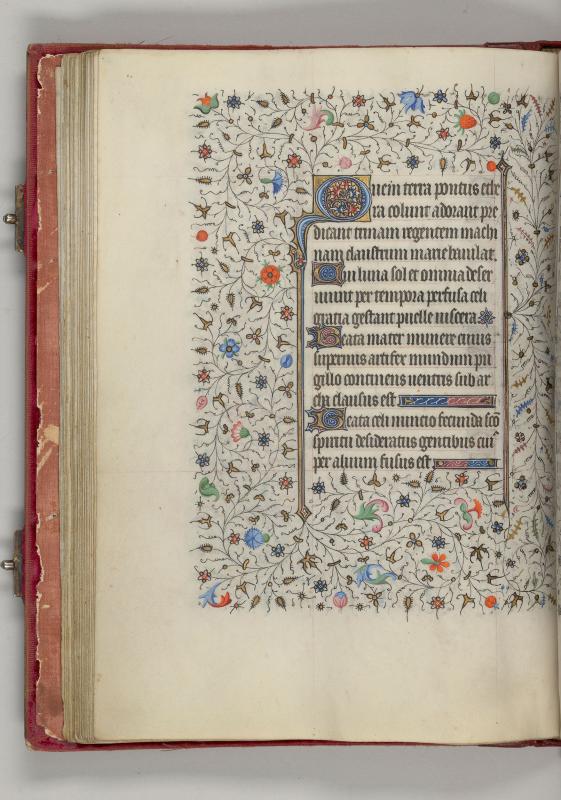 Quem terra pontus ethe
ra colunt adorant pre
dicant trinam regentem machi
nam claustrum marie baiulat.
Cui luna sol et omnia deser
uiunt per tempora perfusa celi
gratia gestant puelle uiscera
Beata mater munere cuius
supernus artifex mundum pu
gillo continens uentris sub ar
cha clausus est
Beata celi nuncio fecunda sc̃o
spiritu desideratus gentibus cui
per aluum fusus est